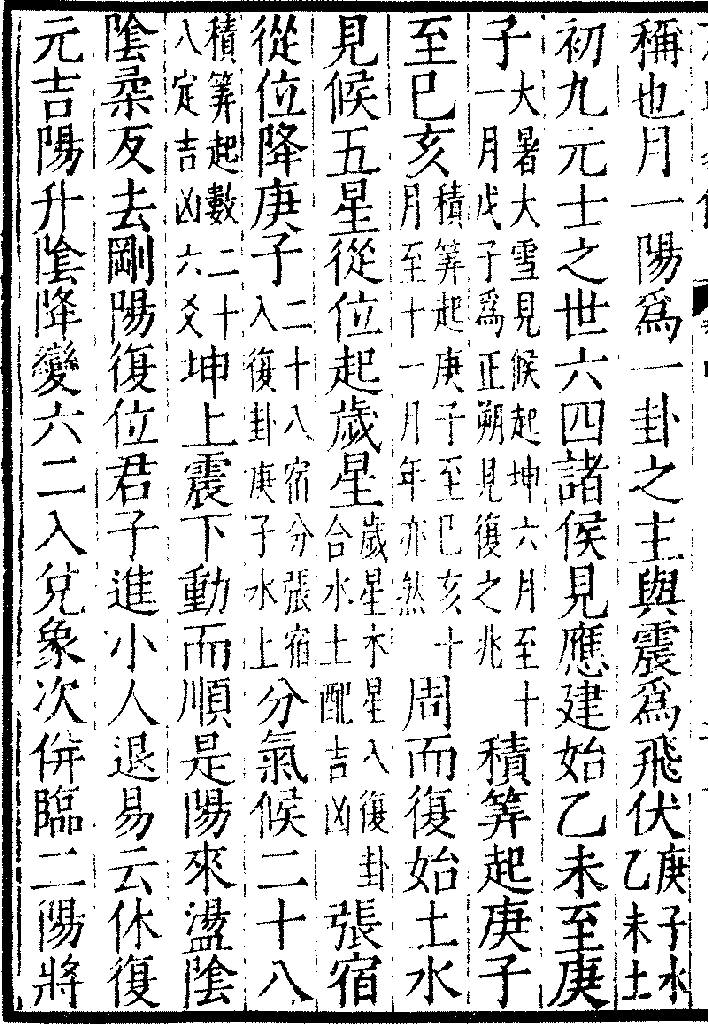 稱也月一陽爲一卦之主與震爲飛伏庚子水乙未土
初九元士之世六四諸侯見應建始乙未至庚
子大暑大雪見候起坤六月至十一月戊子爲正朔見復之兆積筭起庚子
至巳亥積筭起庚子至巳亥十月至十一月年亦然周而復始土水
見候五星從位起歲星歲星木星入復卦合水土配吉凶張宿
從位降庚子二十八宿分張宿入復卦庚子水上分氣候二十八
積筭起數二十八定吉凶六爻坤上震下動而順是陽來盪陰
陰柔反去剛陽復位君子進小人退易云休復
元吉陽升陰降變六二入兌象次倂臨二陽將